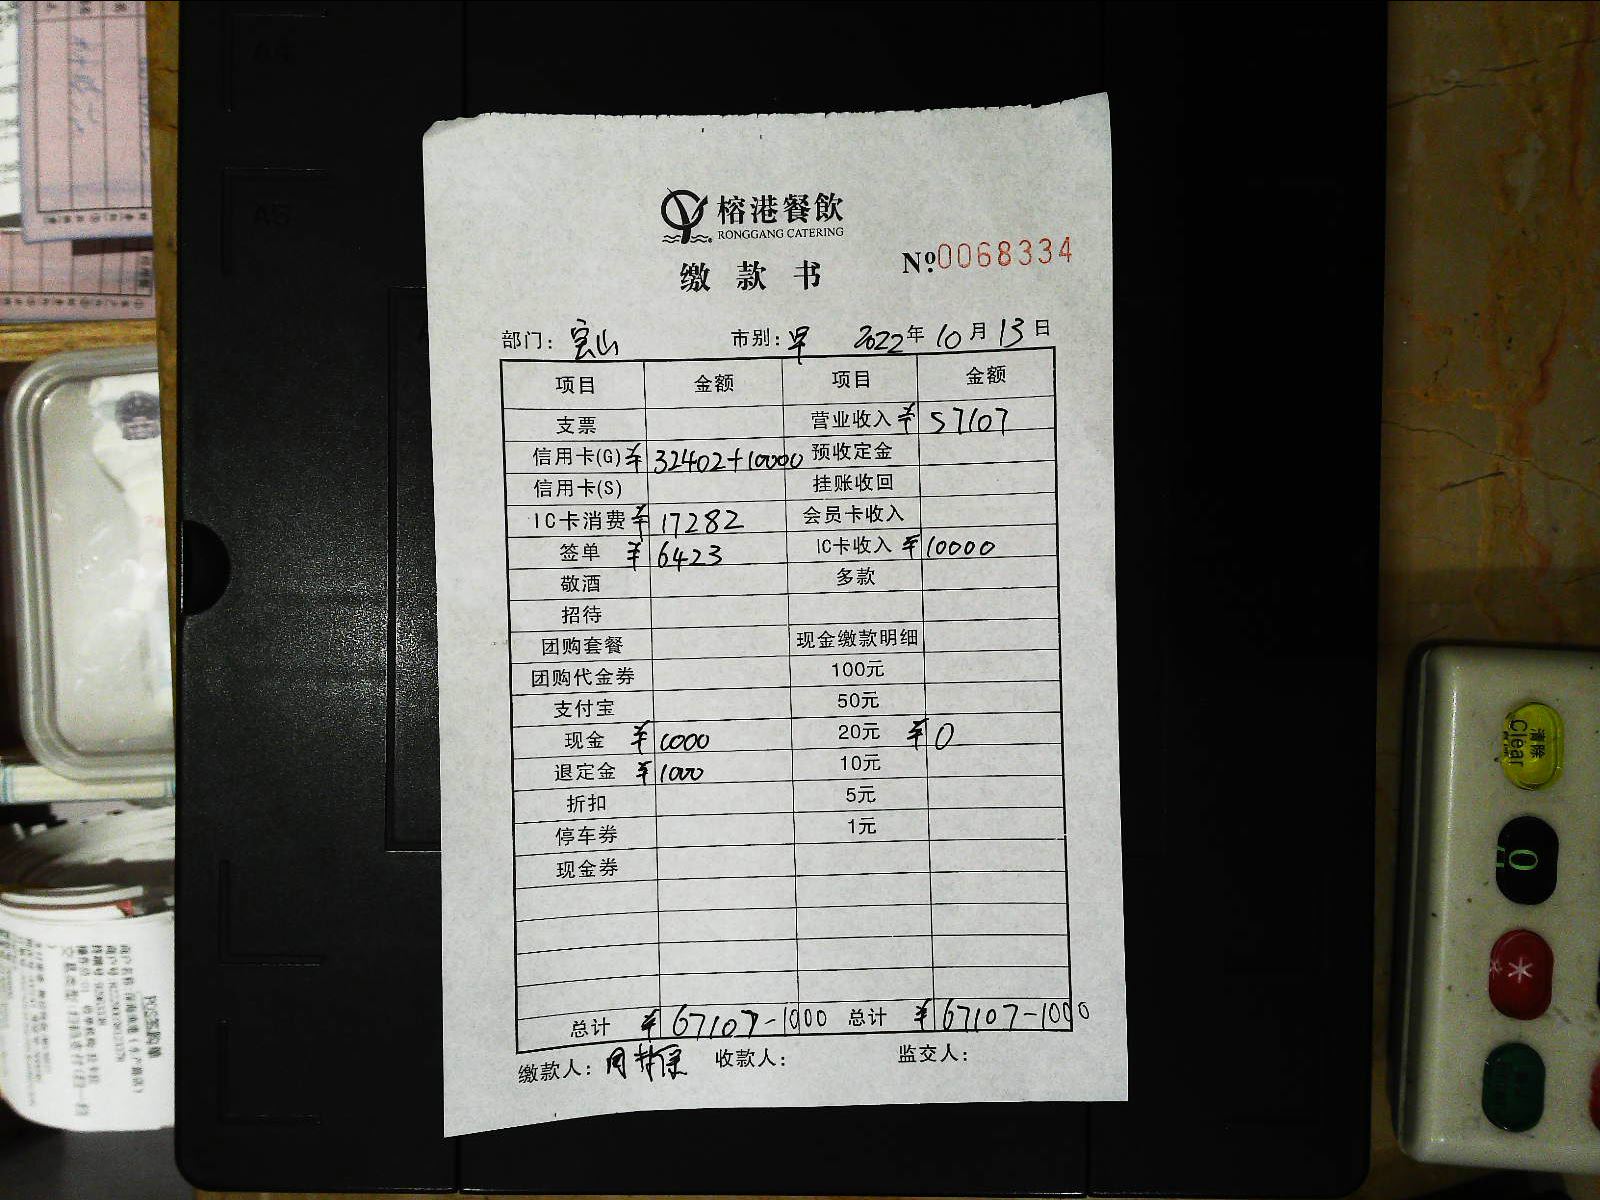 榕港餐飲
RONGGANG CATERING
缴款书 №0068334
部门: 宝山 市别: 早 2022年10月13日
项目 金额 项目 金额
支票 营业收入 ¥ 57107
信用卡(G) ¥ 32402+10000 预收定金
信用卡(S) 挂账收回
IC卡消费 ¥ 17282 会员卡收入
签单 ¥ 6423 IC卡收入 ¥ 10000
敬酒 多款
招待
团购套餐 现金缴款明细
团购代金券 100元
支付宝 50元
现金 ¥ 1000 20元 ¥ 0
退定金 ¥ 1000 10元
折扣 5元
停车券 1元
现金券
总计 ¥ 67107-1000 总计 ¥ 67107-1000
缴款人: 收款人: 监交人:
清除
Clear
0
*
POS签购单